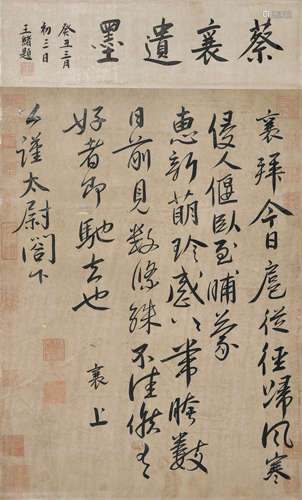 蔡襄遺墨
癸丑三月
初三日
王題
襄拜今日扈從徑歸風寒
侵人偃臥至晡蒙
惠新萌珍感〻帶胯數
日前見數條殊不佳候有
好者即馳去也
襄上
公謹太尉閤下